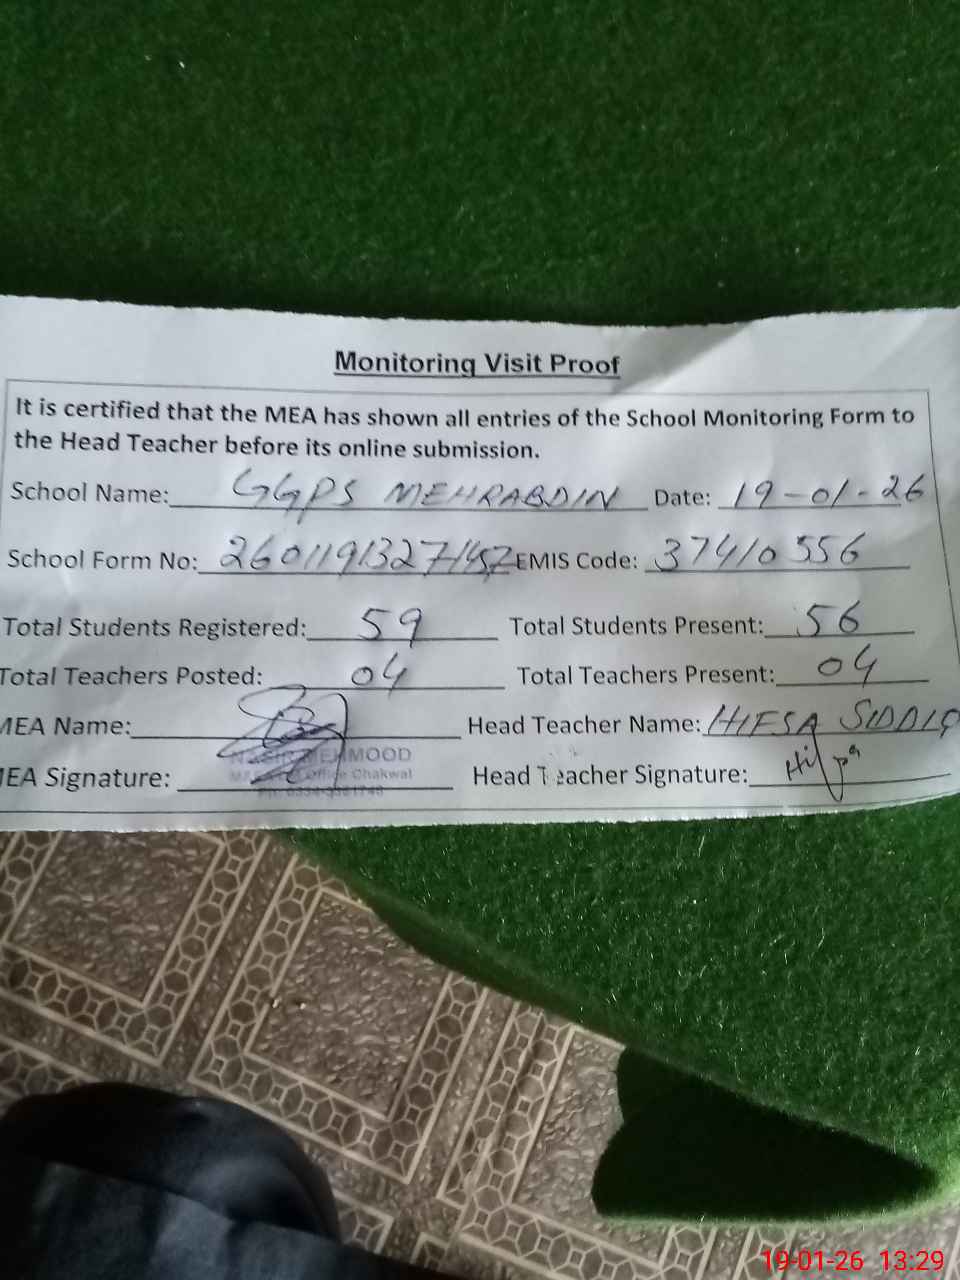 Monitoring Visit Proof
It is certified that the MEA has shown all entries of the School Monitoring Form to
the Head Teacher before its online submission.
School Name: GGPS MEHRABDIN Date: 19-01-26
School Form No: 26011913271457 EMIS Code: 37410556
Total Students Registered: 59 Total Students Present: 56
Total Teachers Posted: 04 Total Teachers Present: 04
MEA Name: Head Teacher Name: HIFSA SIDDIQ
MEHMOOD
MEA Signature: Office Chakwal Head Teacher Signature:
19-01-26 13:29